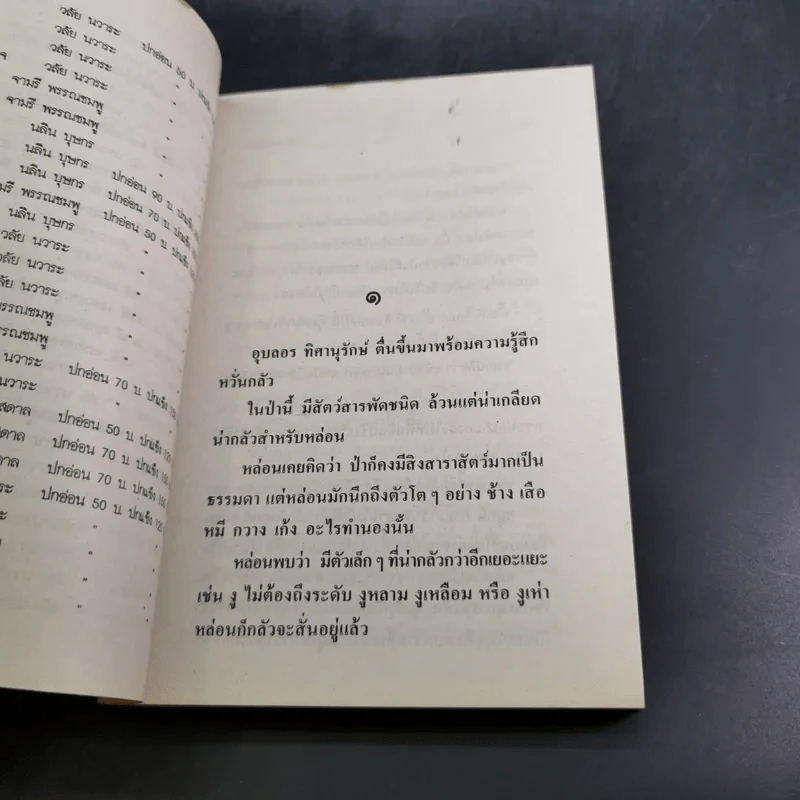 วลัย นวาระ ปกอ่อน 50 บ.
วลัย นวาระ "
วลัย นวาระ "
จามรี พรรณชมพู "
จามรี พรรณชมพู "
นลิน บุษกร "
นลิน บุษกร "
นลิน บุษกร ปกอ่อน 90 บ. ปกแข็ง
พรรณชมพู ปกอ่อน 70 บ. ปกแข็ง
นลิน บุษกร ปกอ่อน 50 บ. ปกแข็ง
วลัย นวาระ "
วลัย นวาระ "
นวาระ "
พรรณชมพู "
พรรณชมพู "
นวาระ ปกอ่อน 70 บ. ปกแข็ง
นวาระ "
ปกอ่อน 50 บ. ปกแข็ง 120
ปกอ่อน 70 บ. ปกแข็ง
ปกอ่อน 70 บ. ปกแข็ง
ปกอ่อน 50 บ. ปกแข็ง 120
"
"
"
"
๑
อุบลอร ทิศานุรักษ์ ตื่นขึ้นมาพร้อมความรู้สึก
หวั่นกลัว
ในป่านี้ มีสัตว์สารพัดชนิด ล้วนแต่น่าเกลียด
น่ากลัวสำหรับหล่อน
หล่อนเคยคิดว่า ป่าก็คงมีสิงสาราสัตว์มากเป็น
ธรรมดา แต่หล่อนมักนึกถึงตัวโต ๆ อย่าง ช้าง เสือ
หมี กวาง เก้ง อะไรทำนองนั้น
หล่อนพบว่า มีตัวเล็ก ๆ ที่น่ากลัวกว่าอีกเยอะแยะ
เช่น งู ไม่ต้องถึงระดับ งูหลาม งูเหลือม หรือ งูเห่า
หล่อนก็กลัวจะสั่นอยู่แล้ว